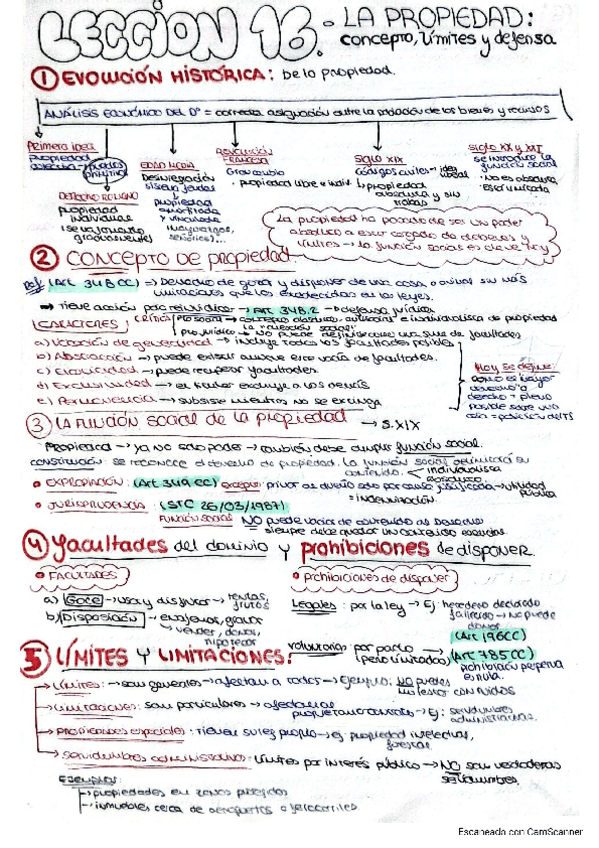 LECCION 16. - LA PROPIEDAD:
concepto, límites y defensa
① EVOLUCIÓN HISTÓRICA: de la propiedad.
ANÁLISIS ECONÓMICO DEL Dº = correcta asignación entre la población de los bienes y recursos
Primera idea
propiedad
colectiva → pueblos
primitivos
DERECHO ROMANO
propiedad
individual
(se va formando
gradualmente)
EDAD MEDIA
Desintegración
sistema feudal
propiedad
amortizada
y vinculada
(mayorazgos,
señoríos)...
REVOLUCIÓN
FRANCESA
Gran cambio
· propiedad libre e indiv.
SIGLO XIX
Códigos civiles →
↳ propiedad
absoluta y sin
trabas
SIGLO XX y XXI
se introduce la
función social
· No es absoluta
· Es limitada
La propiedad ha pasado de ser un poder
absoluto a estar cargado de deberes y
límites → la función social es clave hoy
② CONCEPTO DE propiedad
Def. (Art 348 CC) ⇒ Derecho de gozar y disponer de una cosa o animal sin más
limitaciones que las establecidas en las leyes.
→ Tiene acción para reivindicar → Art 348.2 → defensa jurídica
CRÍTICA
CARACTERES
a) Vocación de generalidad → incluye todas las facultades posibles
b) Abstracción → puede existir aunque esté vacía de facultades.
c) Elasticidad → puede recuperar facultades.
d) Exclusividad → el titular excluye a los demás
e) Permanencia → subsiste mientras no se extinga
Hoy se define:
como el mayor
derecho o
derecho + pleno
posible sobre una
cosa = posición del TS
③ LA FUNCIÓN SOCIAL de la propiedad → S.XIX
Propiedad → ya no solo poder → también debe cumplir función social.
CONSTITUCIÓN: se reconoce el derecho de propiedad. La función social delimitará su
contenido. individualista
absoluto
• EXPROPIACIÓN: (Art 349 CC) privar al dueño solo por causa justificada → utilidad
pública
+ indemnización.
• JURISPRUDENCIA: (STC 26/03/1987)
FUNCIÓN SOCIAL NO puede vaciar de contenido el derecho
siempre debe quedar un contenido esencial
④ facultades del dominio y prohibiciones de disponer
• FACULTADES
a) Goce → usar y disfrutar → rentas,
frutos
b) Disposición → enajenar, gravar
↳ vender, donar,
hipotecar
• prohibiciones de disponer
Legales: por la ley → Ej: heredero declarado
fallecido → no puede
donar
(Art 196 CC)
voluntarias por pacto
(pero limitadas) (Art 785 CC)
prohibición perpetua
es nula.
⑤ LÍMITES Y LIMITACIONES:
→ Límites: → son generales → afectan a todos → Ejemplo: NO puedes
molestar con ruidos
→ Limitaciones: son particulares → afectan al
propietario concreto → Ej: servidumbres
administrativas.
→ propiedades especiales: tienen su ley propia → ej propiedad intelectual,
forestal.
→ servidumbres administrativas: límites por interés público → NO son verdaderas
servidumbres.
Ejemplos:
→ propiedades en zonas protegidas
→ inmuebles cerca de aeropuertos o ferrocarriles
Escaneado con CamScanner